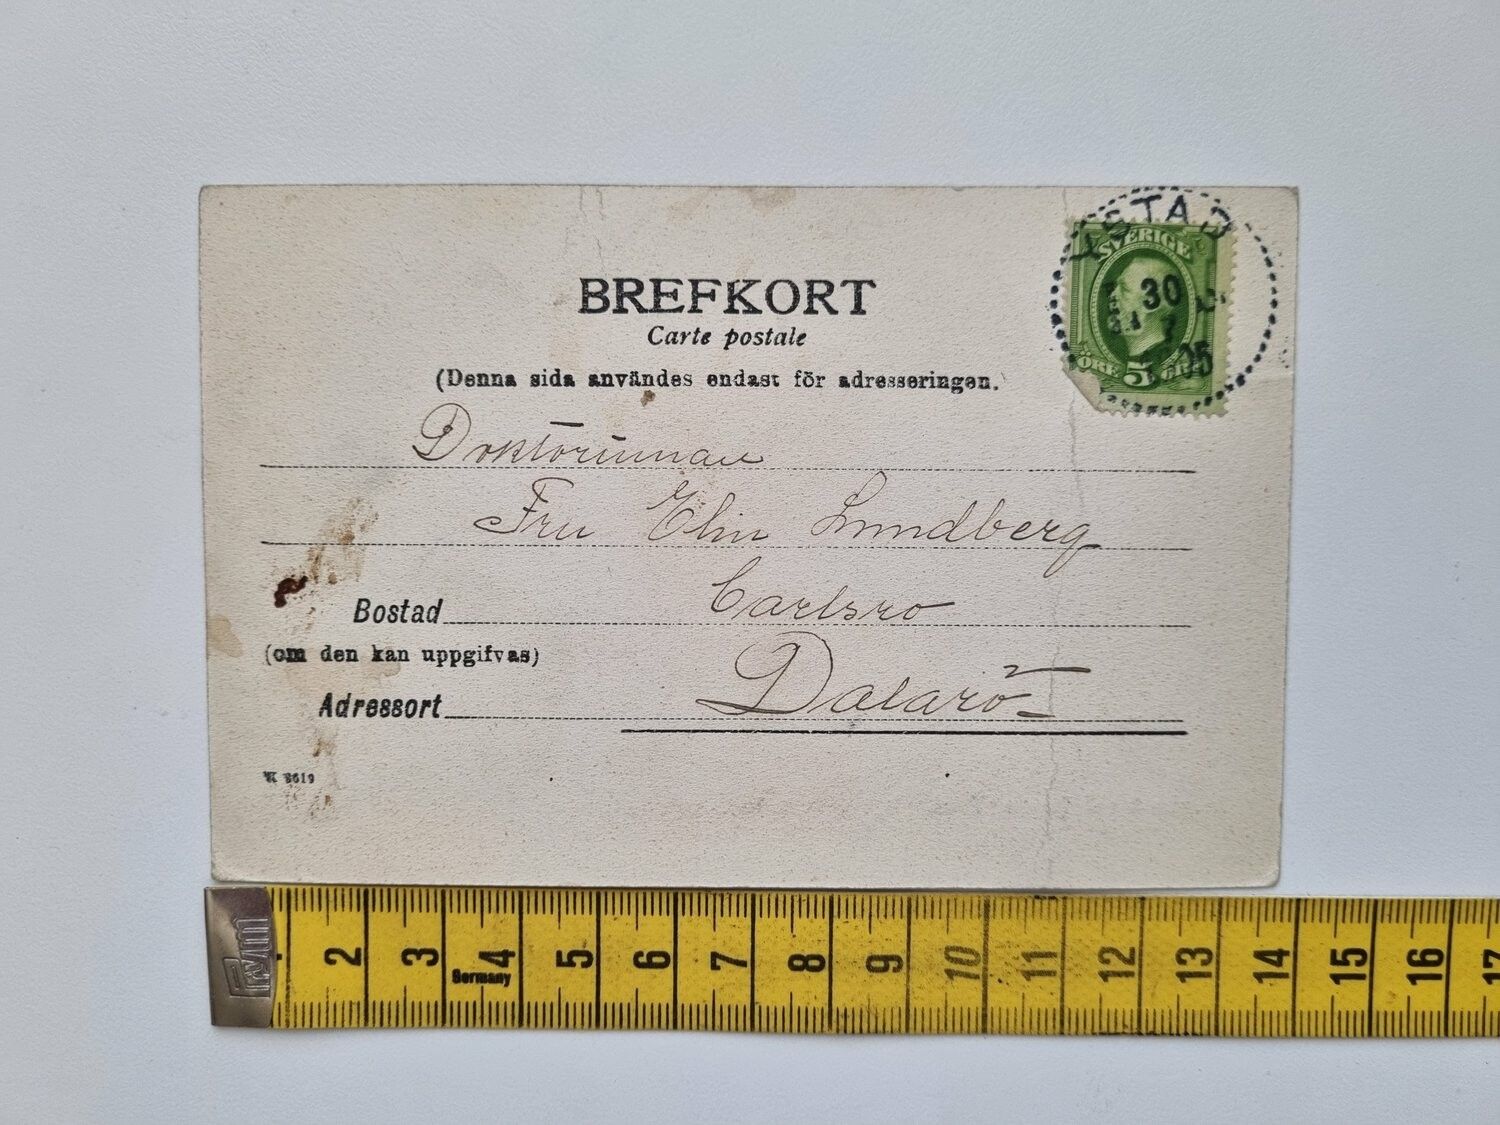 BREFKORT
Carte postale
(Denna sida användes endast för adresseringen.
YSTAD
SVERIGE
30
7
05
ÖRE 5 ÖRE
Doktorinnan
Fru Elin Lundberg
Bostad Carlsro
(om den kan uppgifvas)
Adressort Dalarö
Prym
2 3 4 5 6 7 8 9 10 11 12 13 14 15 16 17
Germany